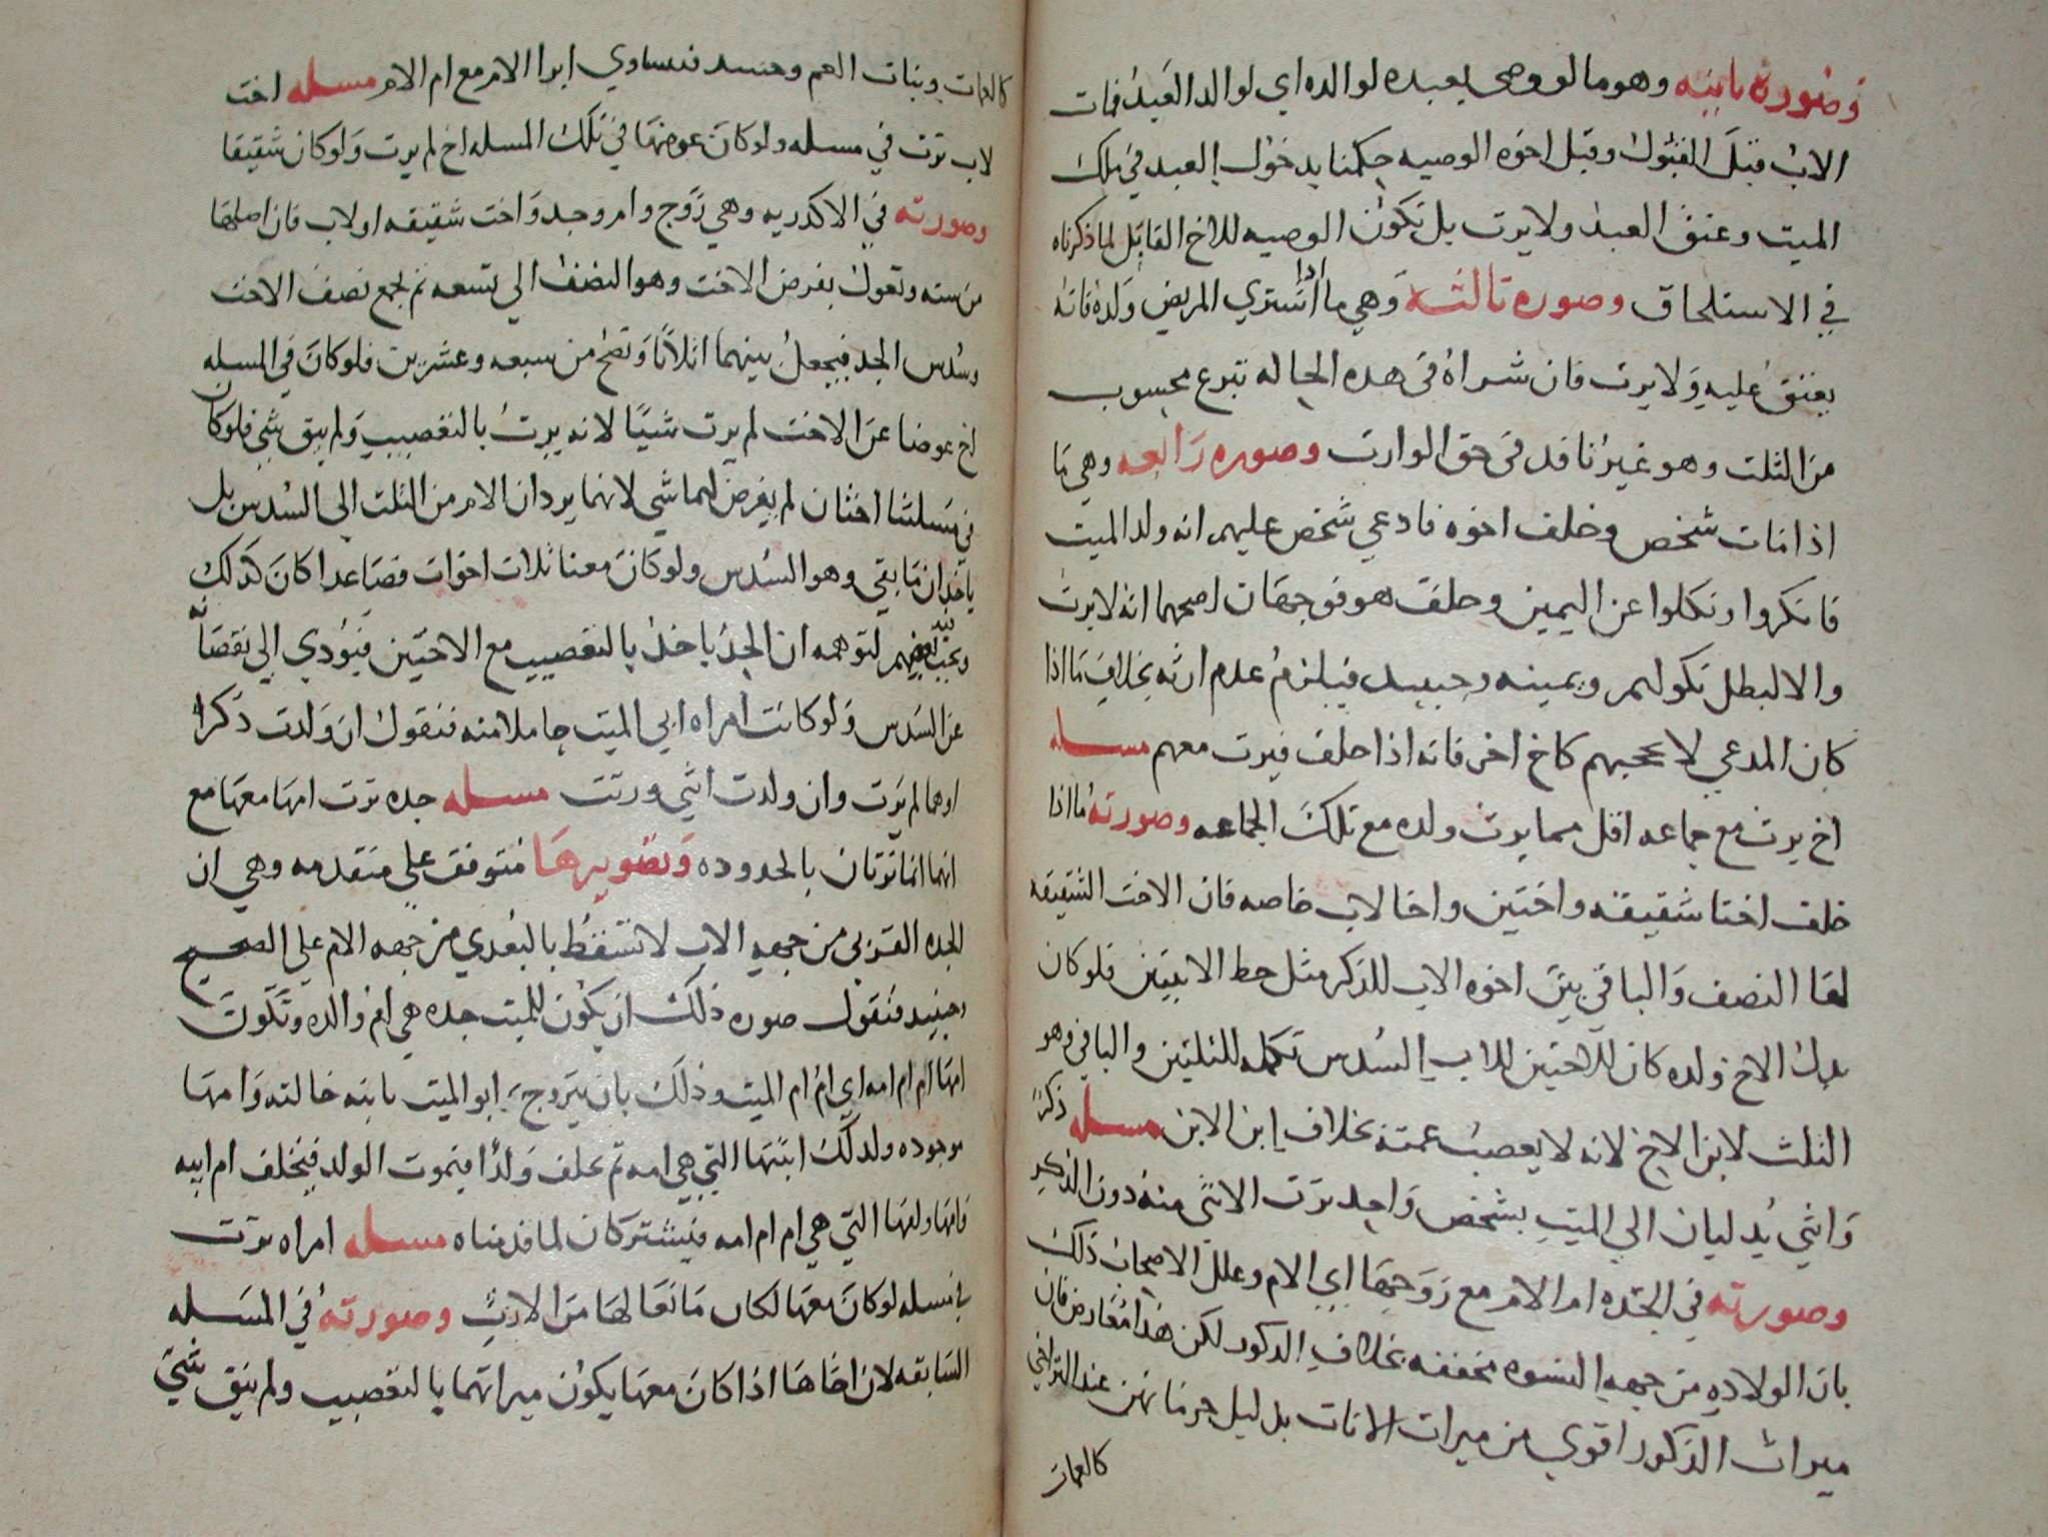 وصورة ثانية وهو ما لو وصي بعبده لوالده اي لوالد العبد فمات
الاب قبل القبول وقبل اخوه الوصيه حكمنا بدخول العبد في ملك
الميت وعتق العبد ولا يرث بل تكون الوصيه للاخ القابل لما ذكرناه
في الاستلحاق وصوره ثالثه وهي ما اذا اشتري المريض ولده فانه
يعتق عليه ولا يرث فان شراه في هده الحاله تبرع محسوب
من الثلث وهو غير نافد في حق الوارث وصوره رابعه وهي ما
اذا مات شخص وخلف اخوه فادعي شخص عليهم انه ولد الميت
فانكروا ونكلوا عن اليمين وحلف هو فوجهان اصحهما انه لا يرث
والا لبطل نكولهم ويمينه وحينيد فيلزم عدم ارثه بخلاف ما اذا
كان المدعي لا يحجبهم كاخ اخر فانه اذا حلف فيرث معهم مسله
اخ يرث مع جماعه اقل مما يرث ولده مع تلك الجماعه وصورته ما اذا
خلف اختا شقيقه واختين واخا لاب خاصه فان الاخت الشقيقه
لها النصف والباقي بين اخوه الاب للذكر مثل حط الانثيين فلو كان
بدل الاخ ولده كان للاختين للاب السدس تكمله للثلثين والباقي وهو
الثلث لابن الاخ لانه لا يعصب عمته بخلاف ابن الابن مسله ذكر
وانثي يدليان الي الميت بشخص واحد ترث الانثي منه دون الذكر
وصورته في الجده ام الام مع زوجها ابي الام وعلل الاصحاب ذلك
بان الولاده من جهه النسوه محققه بخلاف الدكور لكن هذا معارض فان
ميراث الذكور اقوي من ميراث الاناث بدليل حرمانهن عند التراخي
كالعمات
كالعمات وبنات العم وحينيد فيساوي ابوا الام مع ام الام مسله اخت
لاب ترث في مسله ولو كان عوضها في تلك المسله اخ لم يرث ولو كان شقيقا
وصورته في الاكدريه وهي زوج وام وجد واخت شقيقه او لاب فان اصلها
من سته وتعول بفرض الاخت وهو النصف الي تسعه ثم يجمع نصف الاخت
وسدس الجد فيجعل بينهما اثلاثا وتصح من سبعه وعشرين فلو كان في المسله
اخ عوضا عن الاخت لم يرث شيئا لانه يرث بالتعصيب ولم يبق شي فلو كان
في مسلتنا اختان لم يفرض لهما شي لانهما يردان الام من الثلث الي السدس بل
ياخذان ما بقي وهو السدس ولو كان معنا ثلاث اخوات فصاعدا كان كذلك
لتوهمه ان الجد ياخذ بالتعصيب مع الاختين فيؤدي الي نقصانه
عن السدس ولو كانت امراه ابي الميت حاملا منه فنقول ان ولدت ذكرا
اوهما لم يرث وان ولدت انثي ورثت مسله جده ترث امها معها مع
انهما انما ترثان بالجدوده وتصويرها متوقف علي مقدمه وهي ان
الجده القربي من جهه الاب لا تسقط بالبعدي من جهه الام علي الصحيح
وحينيد فنقول صوره ذلك ان يكون للميت جده هي ام والده وتكون
امها ام ام امه اي ام ام الميت وذلك بان يتزوج ابو الميت بابنه خالته وامها
موجوده ولدلك ابنتها التي هي امه ثم يخلف ولدا فيموت الولد فيخلف ام ابيه
فامها ولها التي هي ام ام امه فيشتركان لما قدمناه مسله امراه ترث
في مسله لو كان معها لكان مانعا لها من الارث وصورته في المسله
السابقه لان اخاها اذا كان معها يكون ميراثهما بالتعصيب ولم يبق شي